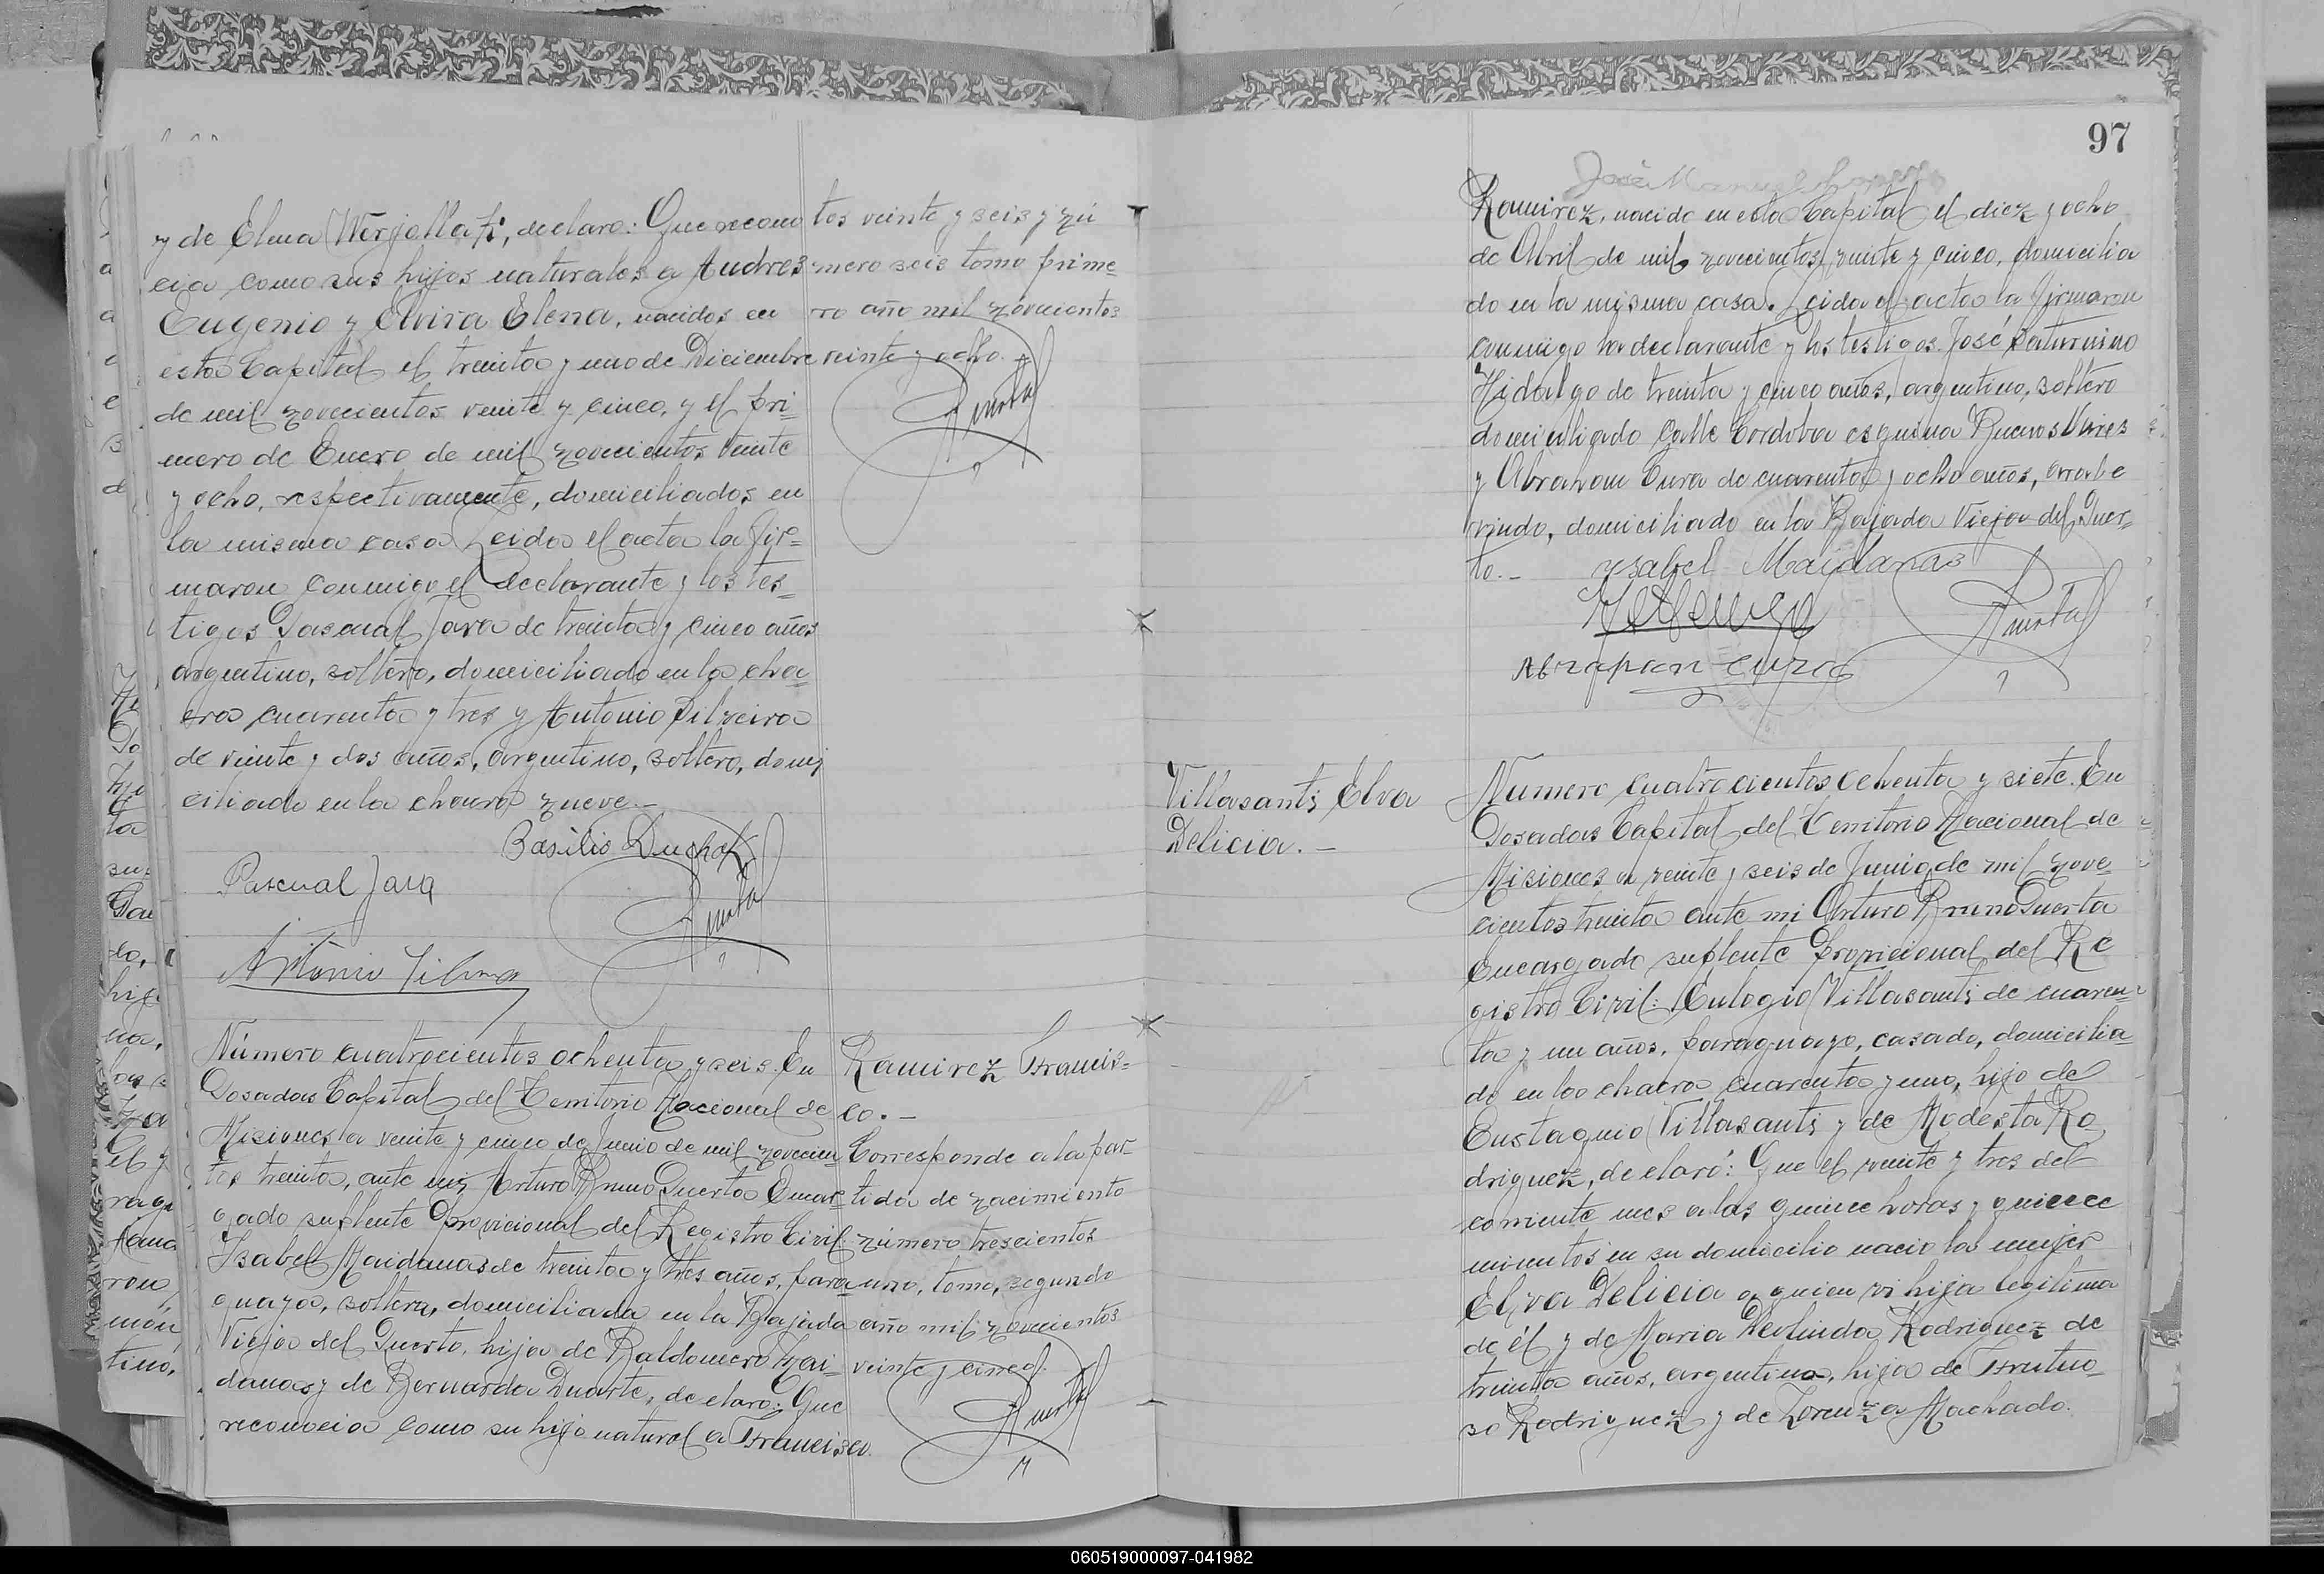 y de Elena Werjollat, declaro: Que recono
cia como sus hijos naturales a Andres
Eugenio y Elvira Elena, nacidos en
esta Capital el treinta y uno de Diciembre
de mil novecientos veinte y cinco, y el pri-
mero de Enero de mil novecientos veinte
y ocho, respectivamente, domiciliados en
la misma casa. Leida el acta la fir=
maron conmigo el declarante y los tes=
tigos Pascual Jara de treinta y cinco años
argentino, soltero, domiciliado en la cha=
cra cuarenta y tres y Antonio Silveira
de veinte y dos años, argentino, soltero, domi
ciliado en la chacra nueve.-
tos veinte y seis y nú
mero seis tomo prime=
ro año mil novecientos
veinte y ocho.
Puerta
Basilio Duchak
Pascual Jara
Puerta
Antonio Silvera
Número cuatrocientos ochenta y seis. En
Posadas Capital del Territorio Nacional de
Misiones a veinte y cinco de Junio de mil novecien
tos treinta, ante mi Arturo Bruno Puerta Encar=
gado suplente provicional del Registro Civil:
Isabel Maidanas de treinta y tres años, para=
guaya, soltera, domiciliada en la Bajada
Vieja del Puerto, hija de Baldomero Mai-
danas y de Bernarda Duarte, declaro: Que
reconocia como su hijo natural a Francisco
Ramirez Francis=
co.-
Corresponde a la par-
tida de nacimiento
número trescientos
uno, tomo, segundo
año mil novecientos
veinte y cinco.
Puerta
97
José Manuel
Ramirez, nacido en esta Capital el diez y ocho
de Abril de mil novecientos veinte y cinco, domicilia
do en la misma casa. Leida el acta la firmaron
conmigo la declarante y los testigos José Saturnino
Hidalgo de treinta y cinco años, argentino, soltero
domiciliado calle Cordoba esquina Buenos Aires
y Abraham Cura de cuarenta y ocho años, arabe
viudo, domiciliado en la Bajada Vieja del Puer=
to.-
Ysabel Maidanas
Puerta
Villasanti Elva
Delicia.-
Número cuatrocientos ochenta y siete. En
Posadas Capital del Territorio Nacional de
Misiones a veinte y seis de Junio de mil nove=
cientos treinta ante mi Arturo Bruno Puerta
Encargado suplente provicional del Re
gistro Civil: Eulogio Villasanti de cuaren=
ta y un años, paraguayo, casado, domicilia=
do en la chacra cuarenta y uno, hijo de
Eustaquio Villasanti y de Modesta Ro
driguez, declaró: Que el veinte y tres del
corriente mes a las quince horas y quince
minutos en su domicilio nacio la mujer
Elva Delicia a quien vi hija legitima
de él y de Maria Deolinda Rodriguez de
treinta años, argentina, hija de Frutuo-
so Rodriguez y de Lorenza Machado.
060519000097-041982